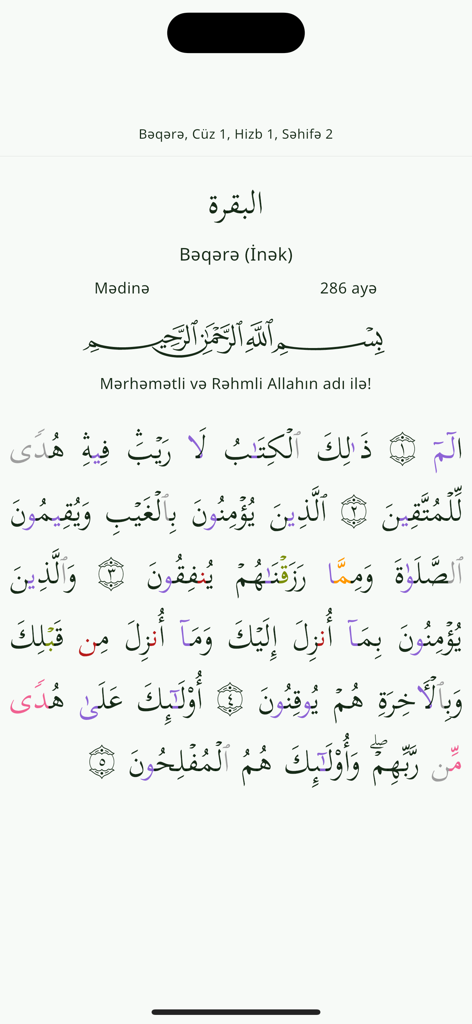 Bəqərə, Cüz 1, Hizb 1, Səhifə 2
البقرة
Bəqərə (İnək)
Mədinə 286 ayə
بِسْمِ ٱللَّهِ ٱلرَّحْمَٰنِ ٱلرَّحِيمِ
Mərhəmətli və Rəhmli Allahın adı ilə!
الٓمٓ ١ ذَٰلِكَ ٱلْكِتَـٰبُ لَا رَيْبَ ۛ فِيهِ ۛ هُدًى
لِّلْمُتَّقِينَ ٢ ٱلَّذِينَ يُؤْمِنُونَ بِٱلْغَيْبِ وَيُقِيمُونَ
ٱلصَّلَوٰةَ وَمِمَّا رَزَقْنَـٰهُمْ يُنفِقُونَ ٣ وَٱلَّذِينَ
يُؤْمِنُونَ بِمَآ أُنزِلَ إِلَيْكَ وَمَآ أُنزِلَ مِن قَبْلِكَ
وَبِٱلْأَخِرَةِ هُمْ يُوقِنُونَ ٤ أُو۟لَـٰٓئِكَ عَلَىٰ هُدًى
مِّن رَّبِّهِمْ ۖ وَأُو۟لَـٰٓئِكَ هُمُ ٱلْمُفْلِحُونَ ٥